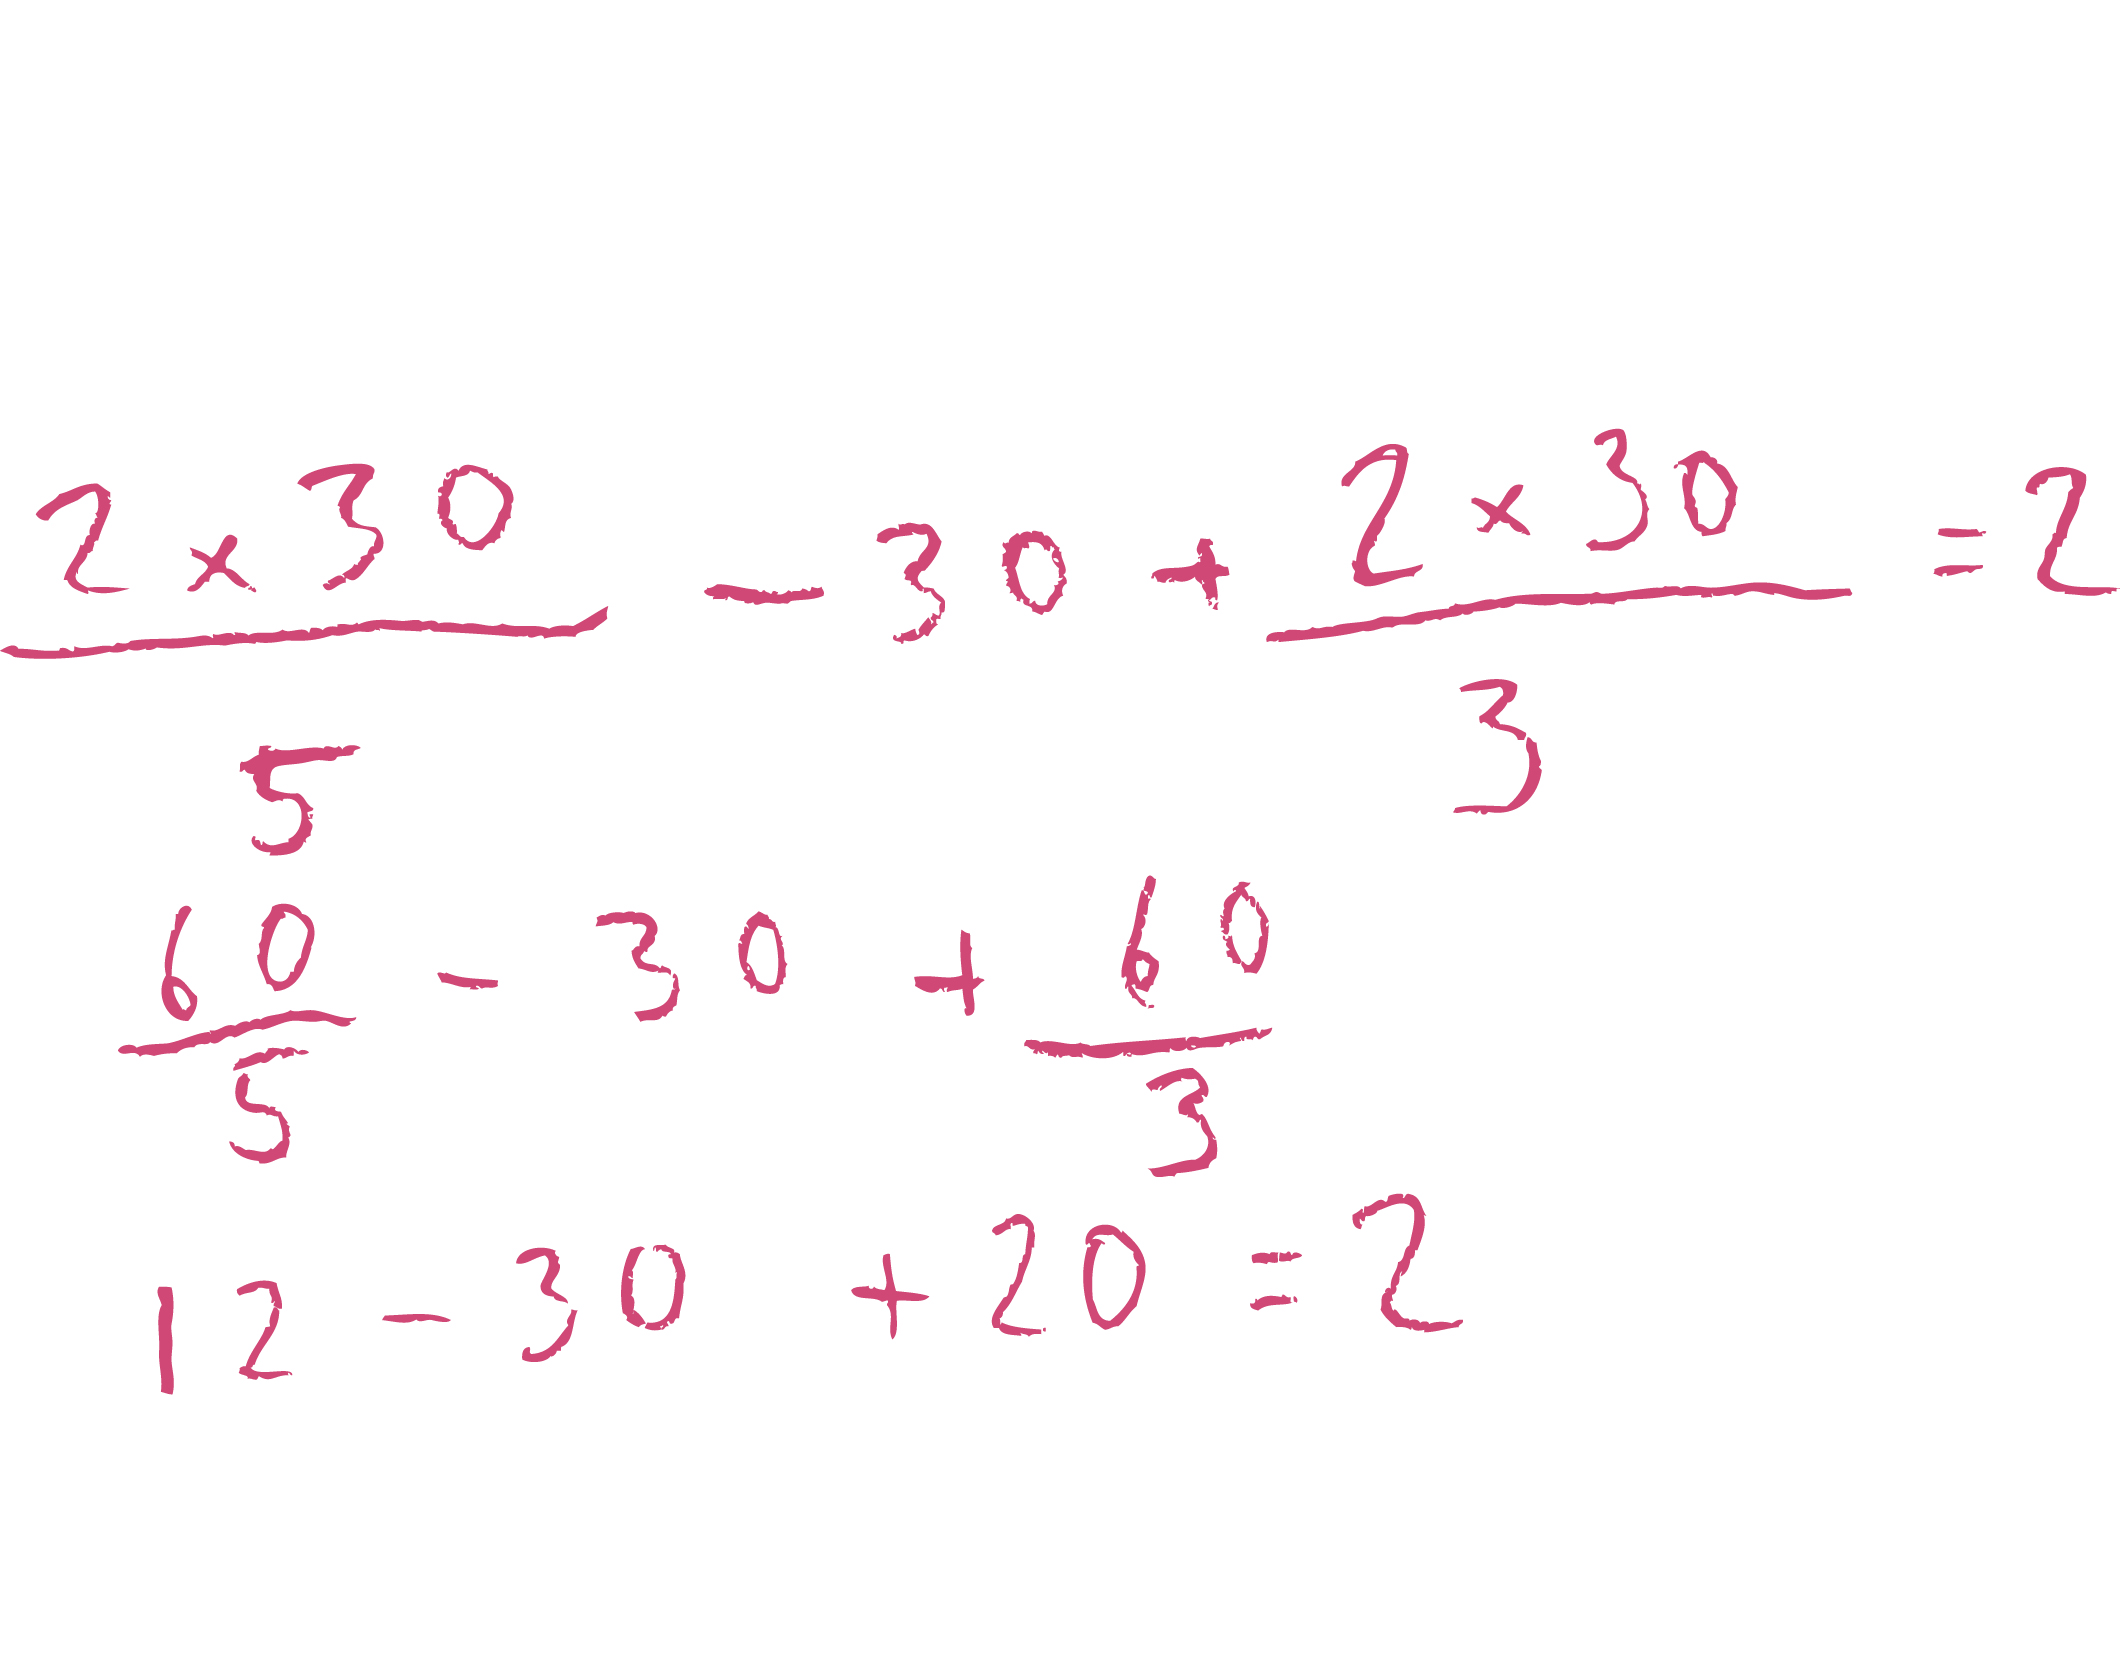 2 × 30 / 5 - 30 + 2 × 30 / 3 = 2
60 / 5 - 30 + 60 / 3
12 - 30 + 20 = 2